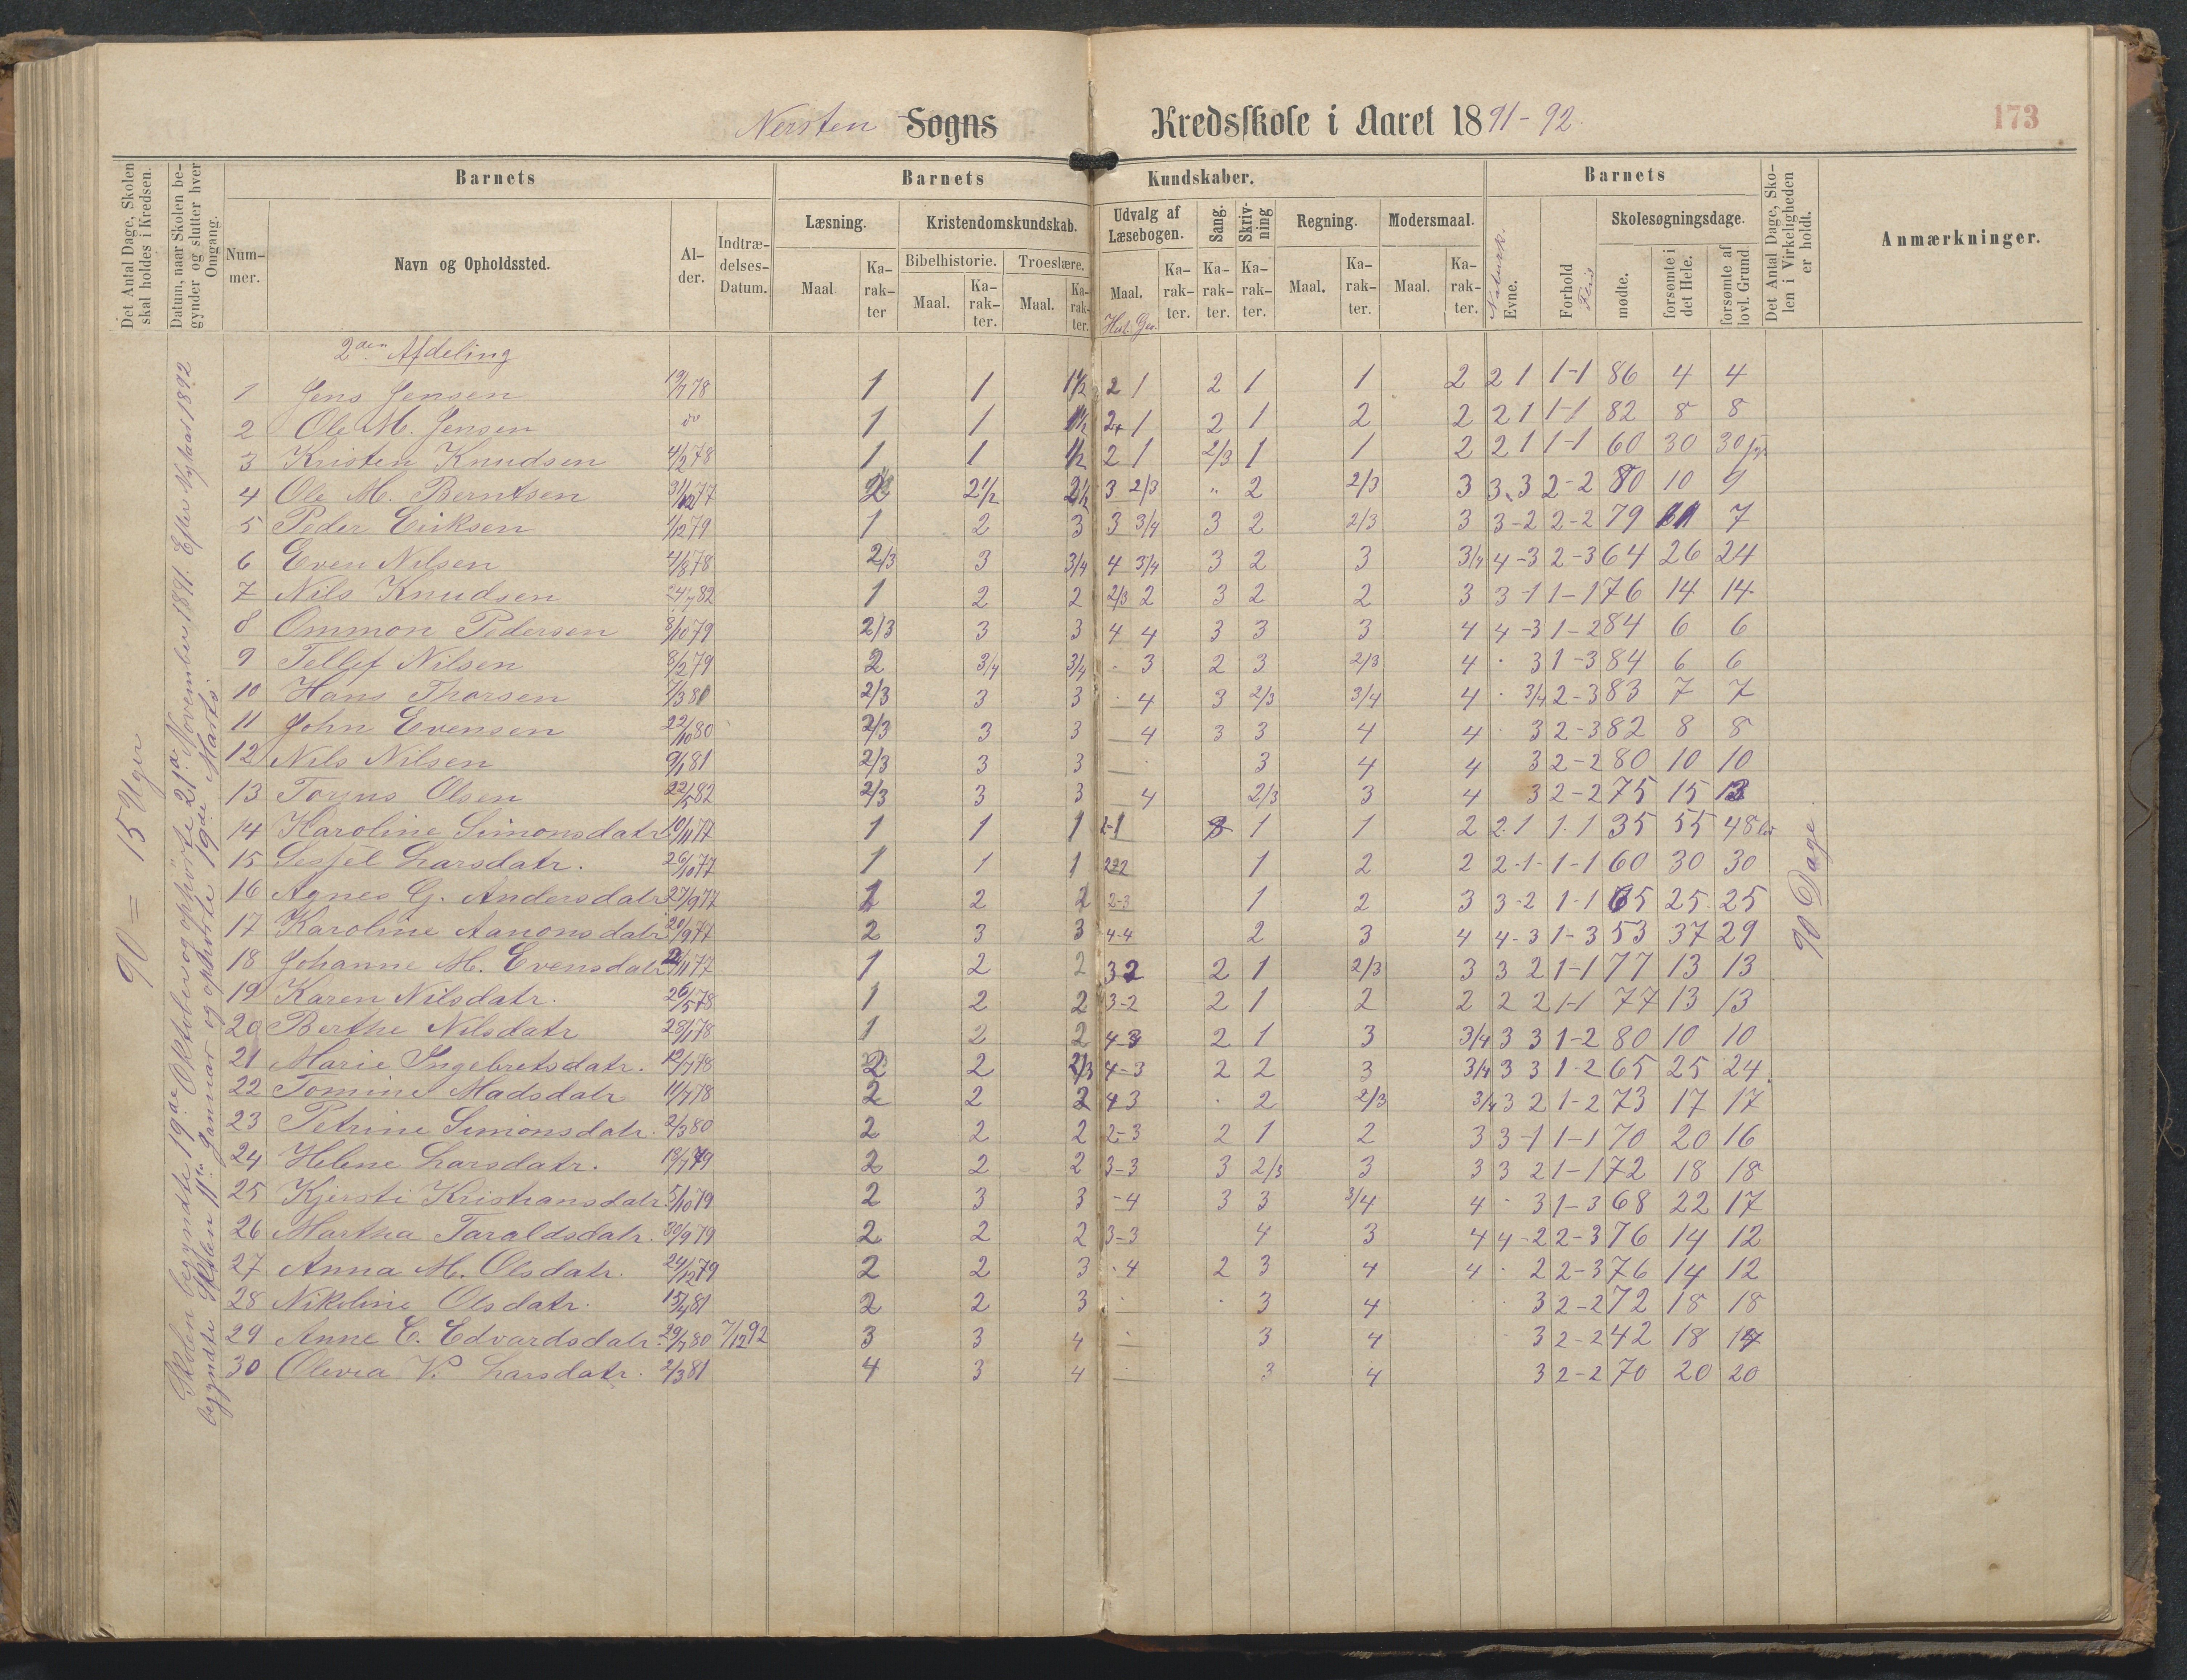 Nersten Sogns Kredsskole i Aaret 1891-92.
173
Det Antal Dage, Skolen skal holdes i Kredsen.
Datum, naar Skolen begynder og slutter hver Omgang.
Barnets
Nummer.
Navn og Opholdssted.
Alder.
Indtrædelses-Datum.
Barnets Kundskaber.
Læsning. Maal Karakter
Kristendomskundskab.
Bibelhistorie. Maal. Karakter.
Troeslære. Maal. Karakter.
Udvalg af Læsebogen. Maal. Karakter. Hist. Geo.
Sang. Karakter.
Skrivning Karakter.
Regning. Maal. Karakter.
Modersmaal. Maal. Karakter.
Barnets
Naturk. Evne.
Forhold Flid
Skolesøgningsdage.
mødte.
forsømte i det Hele.
forsømte af lovl. Grund
Det Antal Dage, Skolen i Virkeligheden er holdt.
Anmærkninger.
90 = 15 Uger
Skolen begyndte 19de Oktober og ophørte 21de November 1891. Efter Nytaar 1892
begyndte Skolen 11te Januar og ophørte 19de Marts.
90 Dage.
2den Afdeling
1 Jens Jensen 19/7 78 1 1 1½ 2 1 2 1 1 2 2 1 1-1 86 4 4
2 Ole M. Jensen do 1 1 1½ 2+ 1 2 1 2 2 2 1 1-1 82 8 8
3 Kristen Knudsen 4/2 78 1 1 1/2 2 1 2/3 1 1 2 2 1 1-1 60 30 30
4 Ole M. Berntsen 31/12 77 2 2½ 2½ 3 2/3 " 2 2/3 3 3 3 2-2 80 10 9
5 Peder Eriksen 1/12 79 1 2 3 3 3/4 3 2 2/3 3 3-2 2-2 79 11 7
6 Even Nilsen 4/8 78 2/3 3 3/4 4 3/4 3 2 3 3/4 4-3 2-3 64 26 24
7 Nils Knudsen 24/7 82 1 2 2 2/3 2 3 2 2 3 3-1 1-1 76 14 14
8 Ommon Pedersen 8/10 79 2/3 3 3 4 4 3 3 3 4 4-3 1-2 84 6 6
9 Tellef Nilsen 8/2 79 2 3/4 3/4 . 3 2 3 2/3 4 . 3 1-3 84 6 6
10 Hans Thorsen 7/3 80 2/3 3 3 . 4 3 2/3 3/4 4 . 3/4 2-3 83 7 7
11 John Evensen 22/10 80 2/3 3 3 4 3 3 4 4 . 3 2-3 82 8 8
12 Nils Nilsen 9/1 81 2/3 3 3 3 4 4 3 2-2 80 10 10
13 Torjus Olsen 22/5 82 2/3 3 3 4 2/3 3 4 3 2-2 75 15 13
14 Karoline Simonsdatr 10/11 77 1 1 1 2-1 1 1 2 2.1 1.1 35 55 48
15 Sesjel Larsdatr. 26/10 77 1 1 1 2-2 1 2 2 2-1 1-1 60 30 30
16 Agnes G. Andersdatr 27/9 77 1 2 2 2-3 1 2 3 3-2 1-1 65 25 25
17 Karoline Aanonsdatr 20/9 77 2 3 3 4-4 2 3 4 4-3 1-3 53 37 29
18 Johanne M. Evensdatr 2/11 77 1 2 2 3 2 2 1 2/3 3 3 2 1-1 77 13 13
19 Karen Nilsdatr. 26/5 78 1 2 2 3-2 2 1 2 2 2 2 1-1 77 13 13
20 Berthe Nilsdatr 28/1 78 1 2 2 4-3 2 1 3 3/4 3 3 1-2 80 10 10
21 Marie Ingebretsdatr. 12/7 78 2 2 2/3 4-3 2 2 3 3/4 3 3 1-2 65 25 24
22 Tomine Madsdatr 11/7 78 2 2 2 4 3 . 2 2/3 3/4 3 2 1-2 73 17 17
23 Petrine Simonsdatr. 2/3 80 2 2 2 2-3 2 1 2 3 3-1 1-1 70 20 16
24 Helene Larsdatr. 19/7 79 2 2 2 3-3 3 2/3 3 3 3 2 1-1 72 18 18
25 Kjersti Kristiansdatr. 5/10 79 2 3 3 -4 3 3 3/4 4 . 3 1-3 68 22 17
26 Martha Taraldsdatr. 30/9 79 2 2 2 3-3 4 3 4 4-2 2-3 76 14 12
27 Anna M. Olsdatr. 24/12 79 2 2 3 .4 2 3 4 4 . 2 2-3 76 14 12
28 Nikoline Olsdatr. 15/4 81 2 2 3 . . 3 4 3 2-2 72 18 18
29 Anne C. Edvardsdatr. 29/7 80 7/12 92 3 3 4 3 4 3 2-2 42 18 14
30 Olevia V. Larsdatr. 2/3 81 4 3 4 3 4 3 2-2 70 20 20